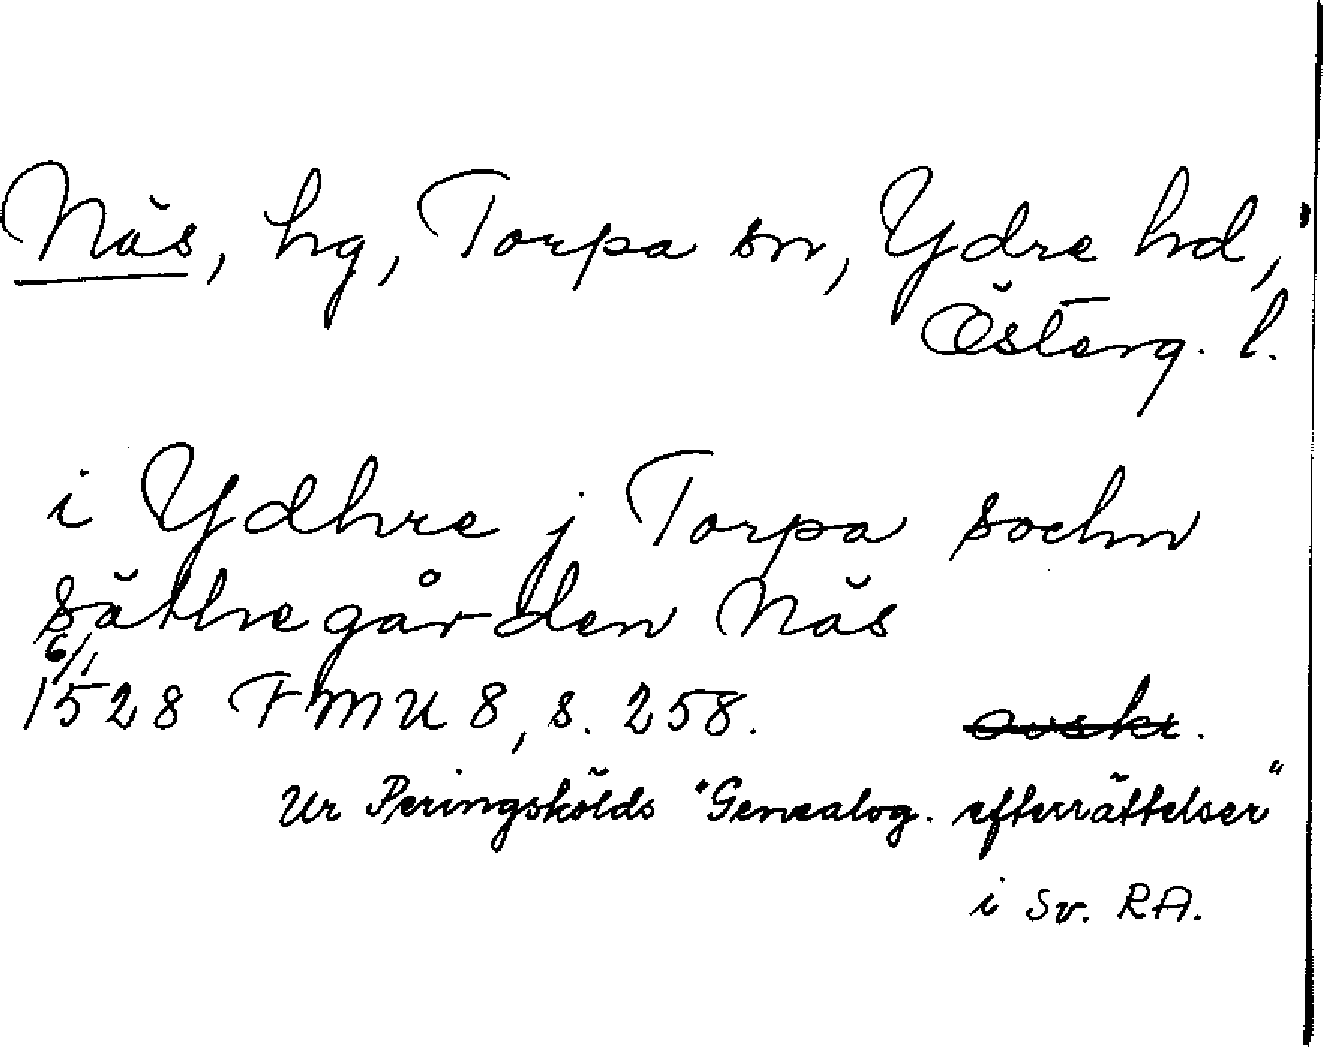 Näs, hg, Torpa sn, Ydre hd,
Österg. l.
i Ydhre j Torpa sochn
säthegården Näs
6/1
1528 FMU 8, s. 258. avskr.
Ur Peringskölds "Genealog. efterrättelser"
i Sv. RA.